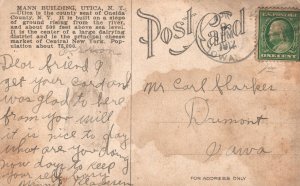 MANN BUILDING, UTICA, N. Y.
Utica is the county seat of Oneida
County, N. Y. It is built on a slope
of ground rising from the river,
and about 500 feet above sea level.
It is the center of a large dairying
district and is the principal cheese
market of Central New York. Pop-
ulation about 75,000.
Post Card
IOWA
ONE CENT
Dear friend
got your card and
was glad to hear
from you will
it is nice to day
what are you doing
now days to keep
your self busy
Mr Carl Starkes
Dumont
Iowa
FOR ADDRESS ONLY